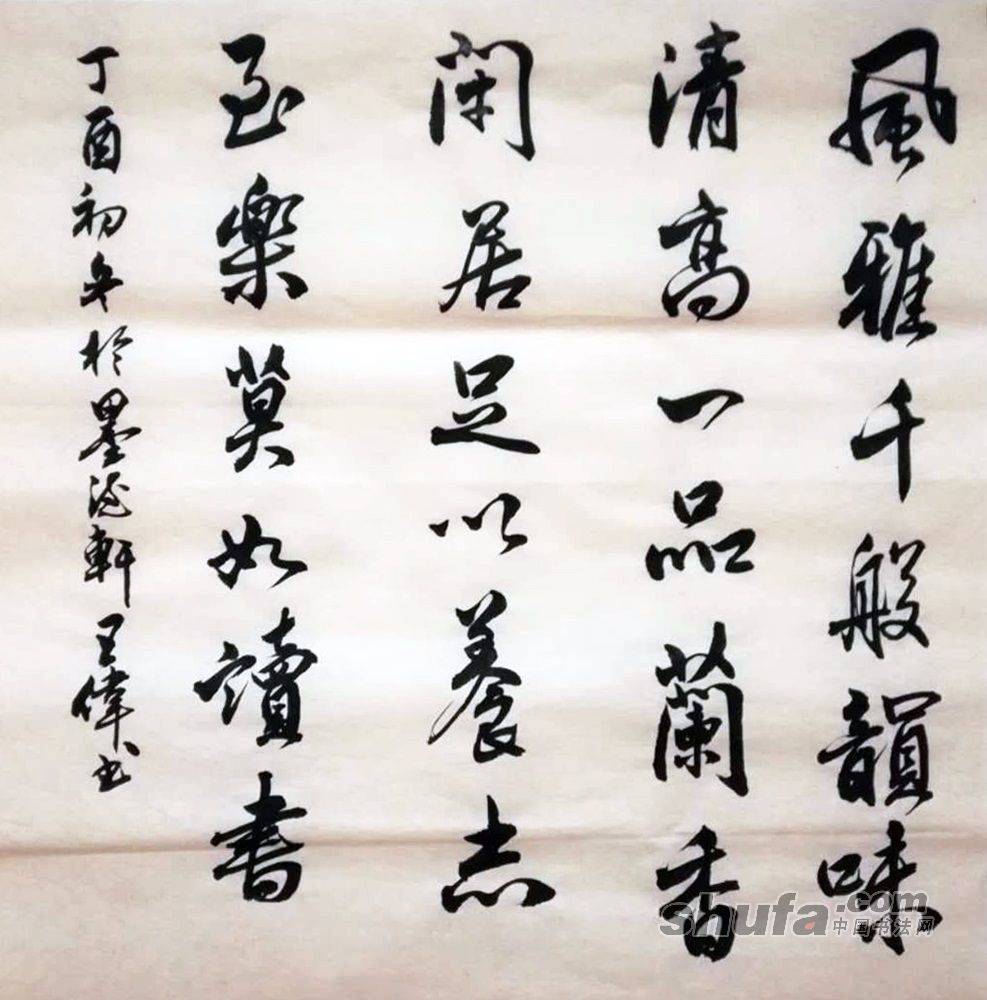 風雅千般韻味
清高一品蘭香
閑居足以養志
至樂莫如讀書
丁酉初冬於墨池軒王偉書
shufa.com
中国书法网